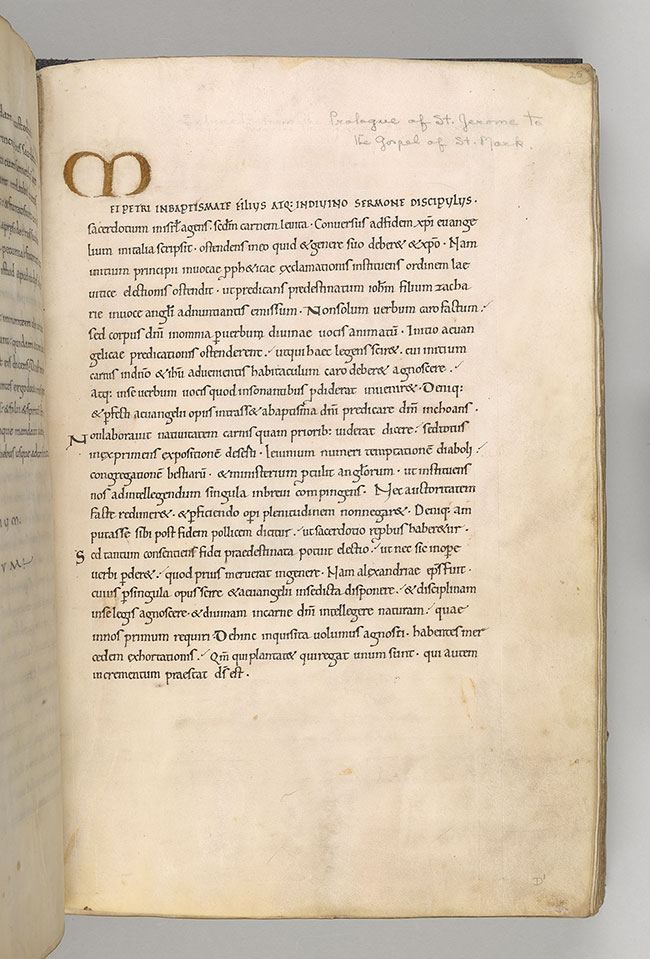 25
Prologue of St. Jerome to
the Gospel of St. Mark.
M
EI PETRI INBAPTISMATE FILIUS ATQ: INDIVINO SERMONE DISCIPULUS ·
sacerdotium inisrł agens. sedm̄ carnem leuita · Conuersus adfidem xpī euange
lium initalia scripsit · ostendens in eo quid & generi suo deber& & xpō · Nam
initium principii inuocae pph&icae exclamationis instituens ordinem lae
uiticę electionis ostendit · ut predicans predestinatum iohm̄ filium zacha
rie inuoce angłi adnuntiantis emissum · Nonsolum uerbum caro factum ./
sed corpus dn̄i inomnia ꝑuerbum diuinae uocis animatū · Initio aeuan
gelicae predicationis ostenderent ./ utqui haec legens scir& · cui initium
carnis indn̄o & ihū aduenientis habitaculum caro deber& agnoscere ./
atq: inse uerbum uocis quod insonantibus ꝑdiderat inuenir& · Deniq:
& ꝑfecti aeuangelii opus intrass& abaptismā dn̄i predicare dm̄ inchoans ·
Nonlaborauit natiuitatem carnis quam priorib: uiderat dicere ./ sedtotus
inexprimens expositionē deserti · Ieiunium numeri temptationē diaboli ./
congregationē bestiarū · & ministerium ꝓtulit angłorum · ut instituens
nos adintellegendum singula inbreui compingens · Nec auctoritatem
facte rediner& · & ꝑficiendo opi plenitudinem nonnegar& · Deniq: am
putasse sibi post fidem pollicem dicitur ./ ut sacerdotio repbus haber&ur ·
Sed tantum consentiens fidei praedestinata potuit electio ./ ut nec sic inope
uerbi ꝑder& ./ quod prius meruerat ingenere · Nam alexandriae eps̄ fuit ·
cuius ꝑsingula opus scire & aeuangelii insedicta disponere ./ & disciplinam
inse legis agnoscere · & diuinam incarne dn̄i intellegere naturam ./ quae
innos primum requiri · Dehinc inquisita uolumus agnosci · habentes mer
cedem exhortationis ./ Qm̄ qui plantat& quiregat unum sunt · qui autem
incrementum praestat ds̄ est ·
D1